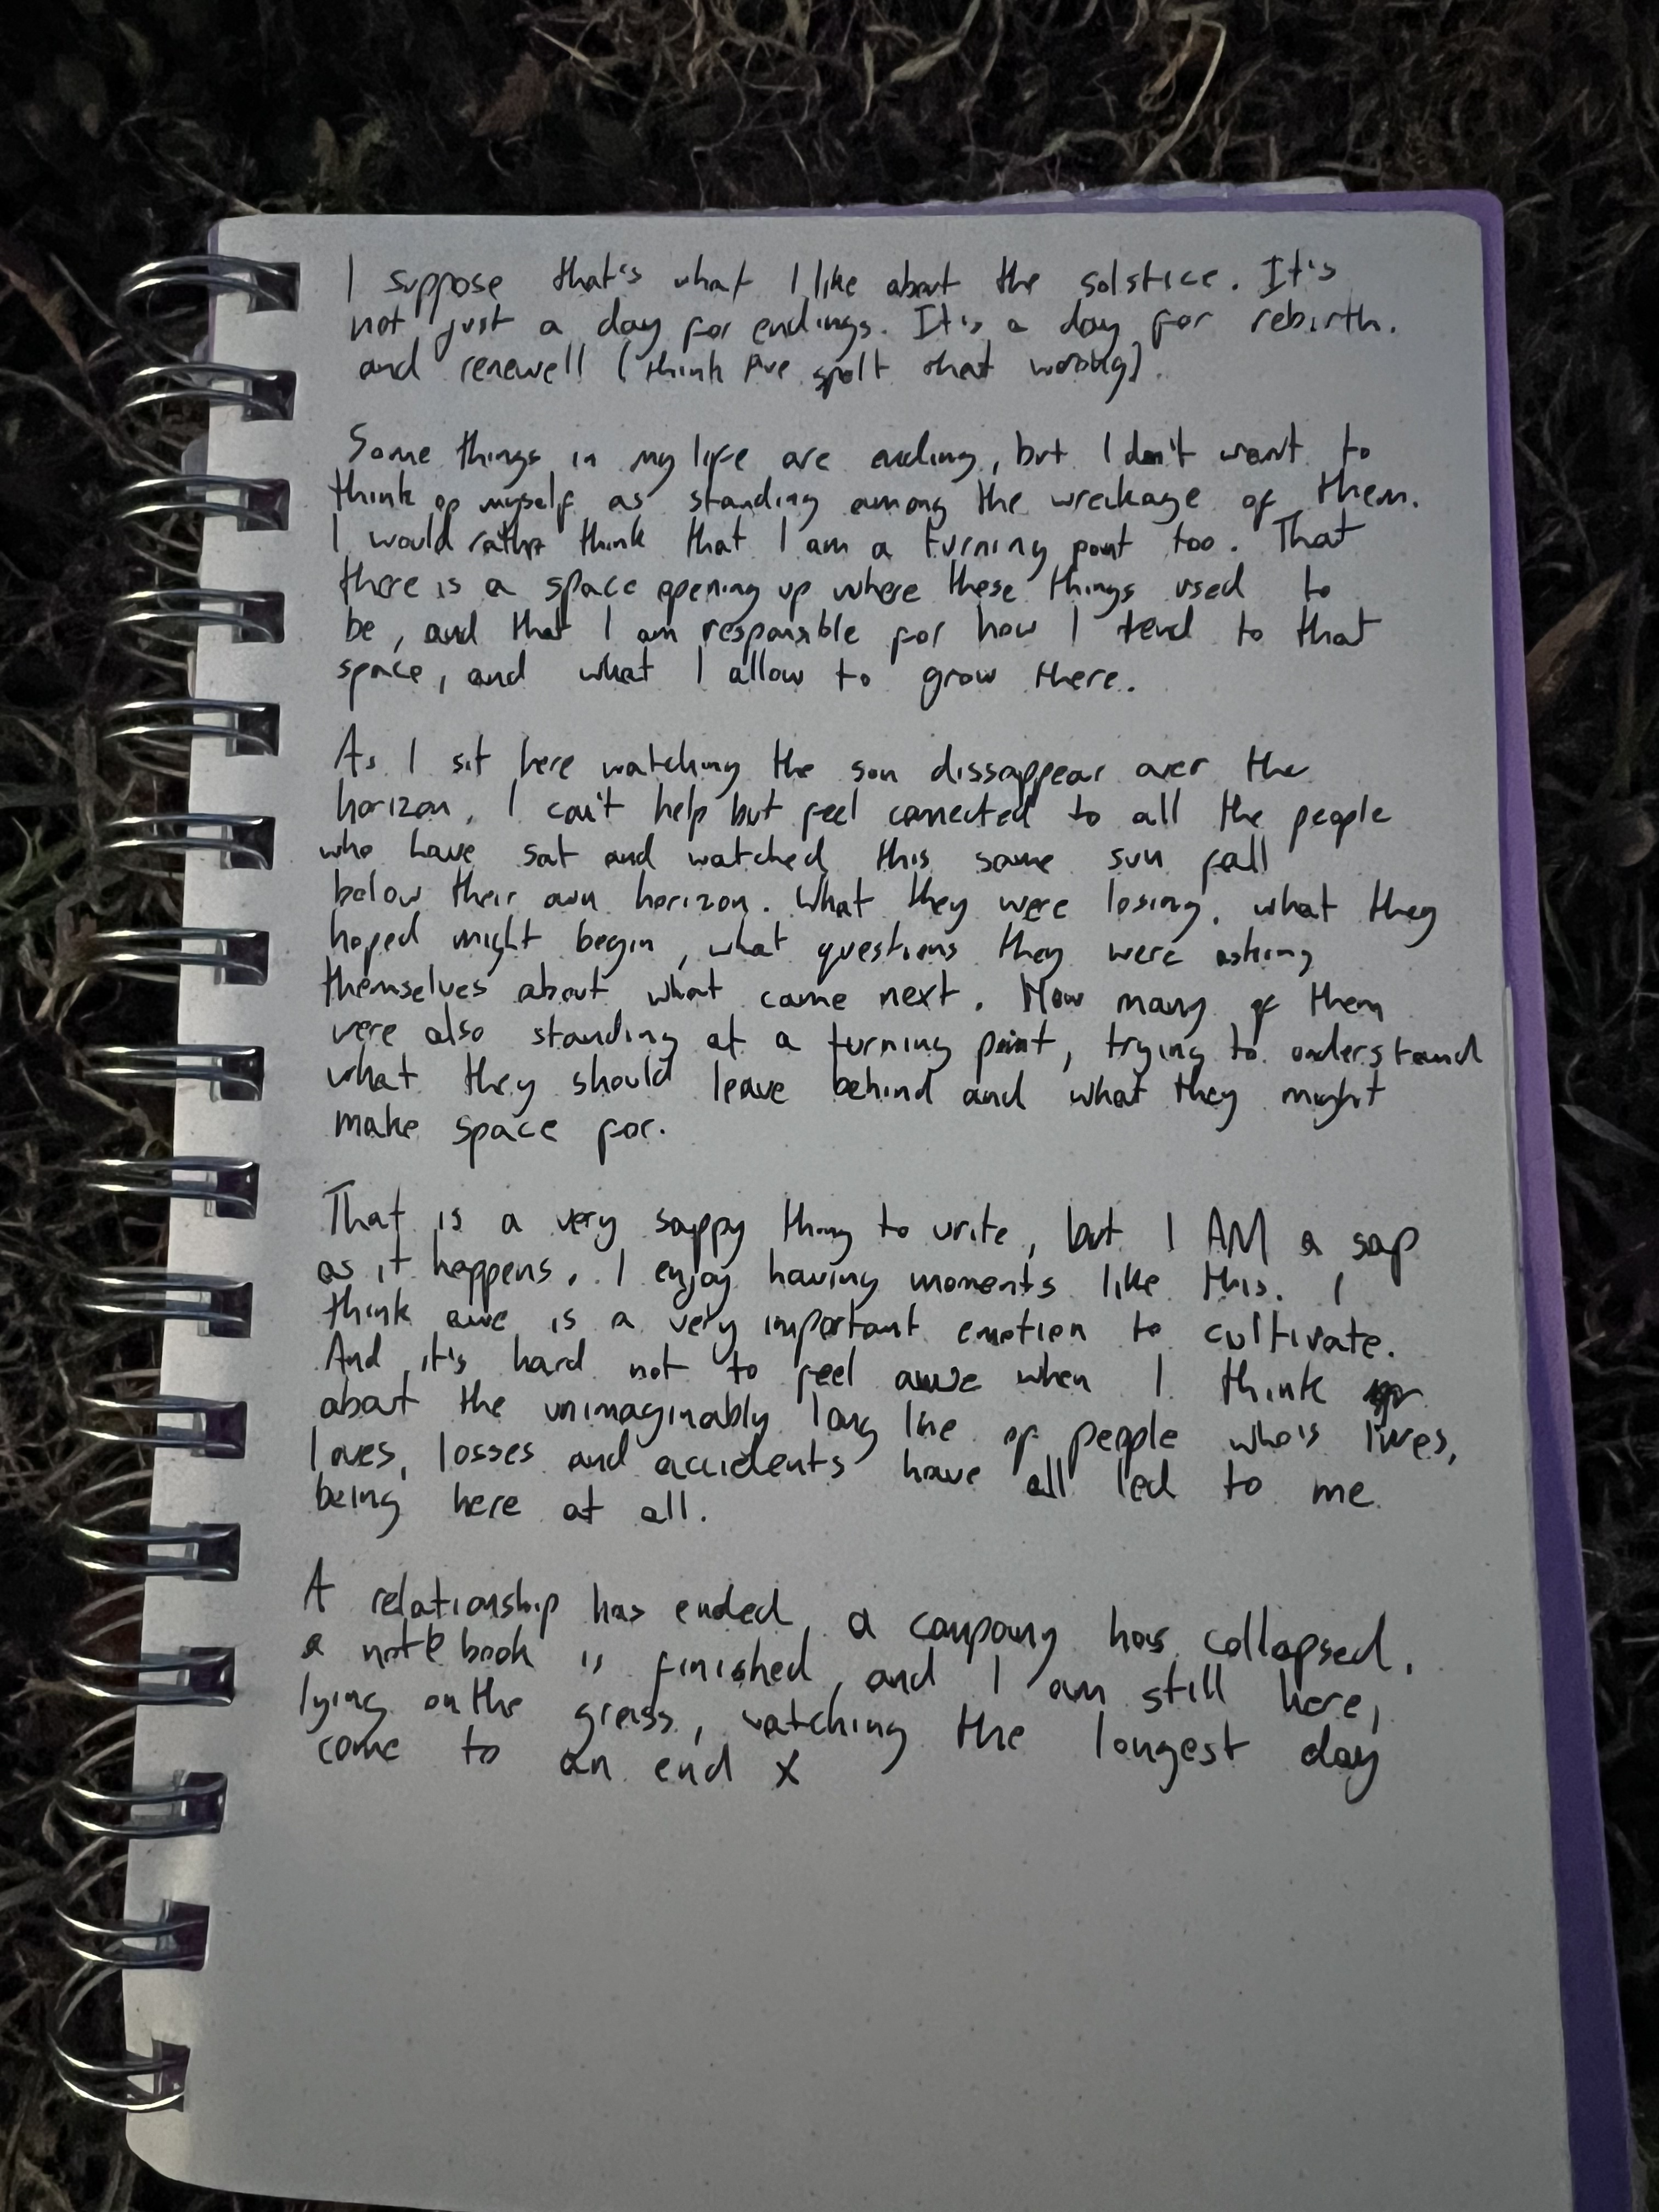 I suppose that's what I like about the solstice. It's
not just a day for endings. It's a day for rebirth.
and renewell (think I've spelt that wrong).
Some things in my life are ending, but I don't want to
think of myself as standing among the wreckage of them.
I would rather think that I am a turning point too. That
there is a space opening up where these things used to
be, and that I am responsible for how I tend to that
space, and what I allow to grow there.
As I sit here watching the sun dissappear over the
horizon, I can't help but feel connected to all the people
who have sat and watched this same sun fall
below their own horizon. What they were losing, what they
hoped might begin, what questions they were asking
themselves about what came next. How many of them
were also standing at a turning point, trying to understand
what they should leave behind and what they might
make space for.
That is a very sappy thing to write, but I AM a sap
as it happens. I enjoy having moments like this. I
think awe is a very important emotion to cultivate.
And it's hard not to feel awe when I think
about the unimaginably long line of people who's lives,
loves, losses and accidents have all led to me
being here at all.
A relationship has ended, a company has collapsed,
a notebook is finished, and I am still here,
lying on the grass, watching the longest day
come to an end x